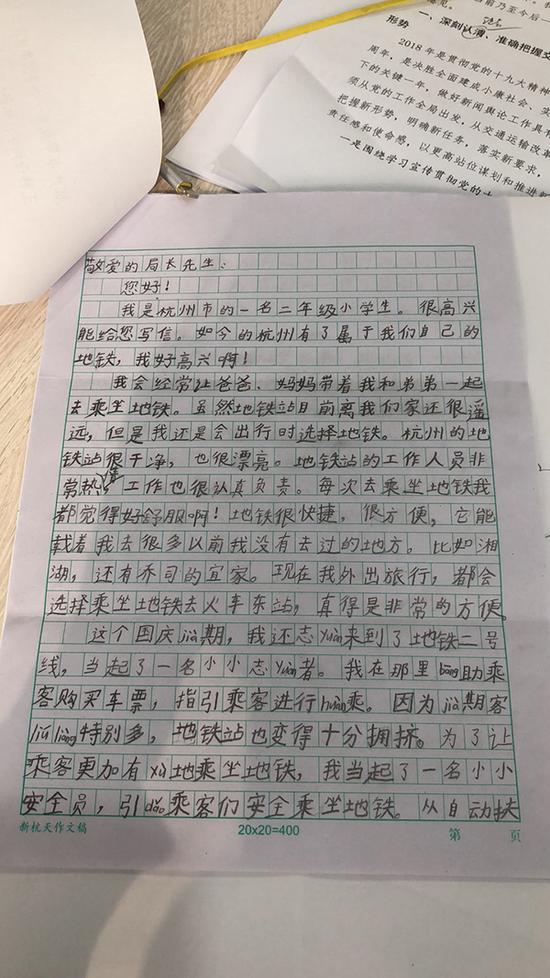 前乃至今后一
意见。
一、深刻认清、准确把握
形势
2018年是贯彻党的十九大精神
周年，是决胜全面建成小康社会、实
下的关键一年，做好新闻舆论工作具有
须从党的工作全局出发，从交通运输改革
把握新形势，明确新任务，落实新要求，
责任感和使命感，以更高站位谋划和推进新
一是围绕学习宣传贯彻党的十
敬爱的局长先生：
您好！
我是杭州市的一名二年级小学生。很高兴
能给您写信。如今的杭州有了属于我们自己的
地铁，我好高兴啊！
我会经常让爸爸、妈妈带着我和弟弟一起
去乘坐地铁。虽然地铁站目前离我们家还很遥
远，但是我还是会出行时选择地铁。杭州的地
铁站很干净，也很漂亮。地铁站的工作人员非
常热情，工作也很认真负责。每次去乘坐地铁我
都觉得好舒服啊！地铁很快捷，很方便，它能
载着我去很多以前我没有去过的地方。比如湘
湖，还有乔司的宜家。现在我外出旅行，都会
选择乘坐地铁去火车东站，真得是非常的方便。
这个国庆jià期，我还志yuàn来到了地铁二号
线，当起了一名小小志yuàn者。我在那里bāng助乘
客购买车票，指引乘客进行huàn乘。因为jià期客
liú liàng特别多，地铁站也变得十分拥挤。为了让
乘客更加有xù地乘坐地铁，我当起了一名小小
安全员，引dǎo乘客们安全乘坐地铁。从自动扶
新杭天作文稿
20x20=400
第 页